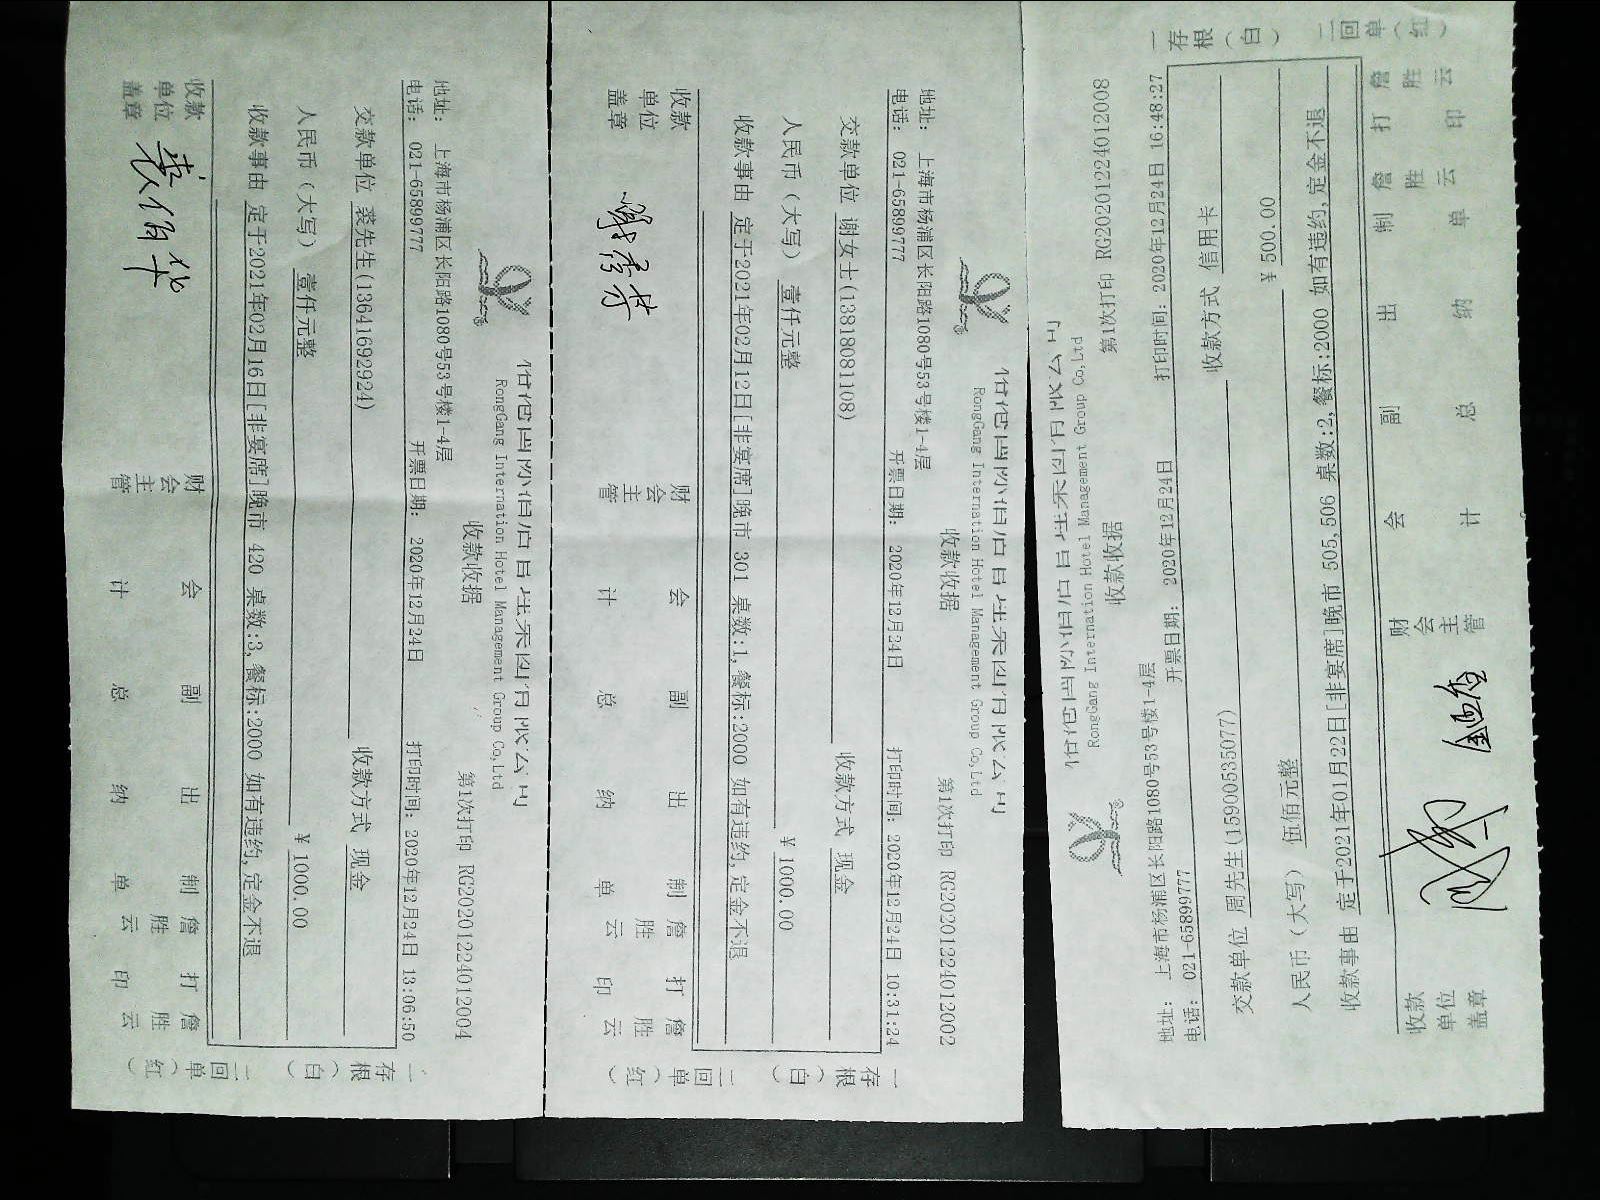 RongGang International Hotel Management Group Co,Ltd
收款收据
第1次打印 RG20201224012004
地址: 上海市杨浦区长阳路1080号53号楼1-4层
电话: 021-65899777 开票日期: 2020年12月24日 打印时间: 2020年12月24日 13:06:50
交款单位 裘先生(13641692924) 收款方式 现金
人民币(大写) 壹仟元整 ¥ 1000.00
收款事由 定于2021年02月16日[非宴席]晚市 420 桌数:3,餐标:2000 如有违约,定金不退
一存根(白) 二回单(红)
收款单位盖章 财会主管 会计 副总 出纳 制单 詹胜云 打印 詹胜云
RongGang International Hotel Management Group Co,Ltd
收款收据
第1次打印 RG20201224012002
地址: 上海市杨浦区长阳路1080号53号楼1-4层
电话: 021-65899777 开票日期: 2020年12月24日 打印时间: 2020年12月24日 10:31:24
交款单位 谢女士(13818081108) 收款方式 现金
人民币(大写) 壹仟元整 ¥ 1000.00
收款事由 定于2021年02月12日[非宴席]晚市 301 桌数:1,餐标:2000 如有违约,定金不退
一存根(白) 二回单(红)
收款单位盖章 财会主管 会计 副总 出纳 制单 詹胜云 打印 詹胜云
RongGang International Hotel Management Group Co,Ltd
收款收据
第1次打印 RG20201224012008
地址: 上海市杨浦区长阳路1080号53号楼1-4层
电话: 021-65899777 开票日期: 2020年12月24日 打印时间: 2020年12月24日 16:48:27
交款单位 周先生(15900535077) 收款方式 信用卡
人民币(大写) 伍佰元整 ¥ 500.00
收款事由 定于2021年01月22日[非宴席]晚市 505,506 桌数:2,餐标:2000 如有违约,定金不退
一存根(白) 二回单(红)
收款单位盖章 财会主管 会计 副总 出纳 制单 詹胜云 打印 詹胜云